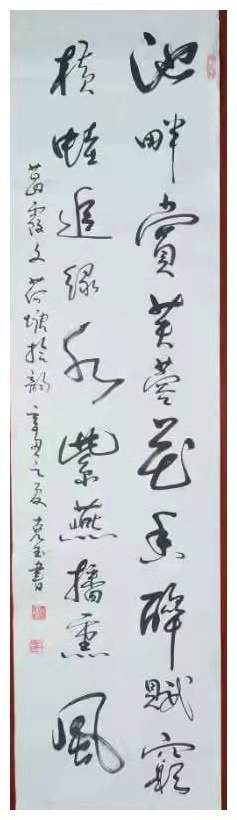 池畔賞芙蓉花香醉賦窮
橫蛙追綠水紫燕播熏風
葛霞文荷塘拾韵辛丑之夏克玉書